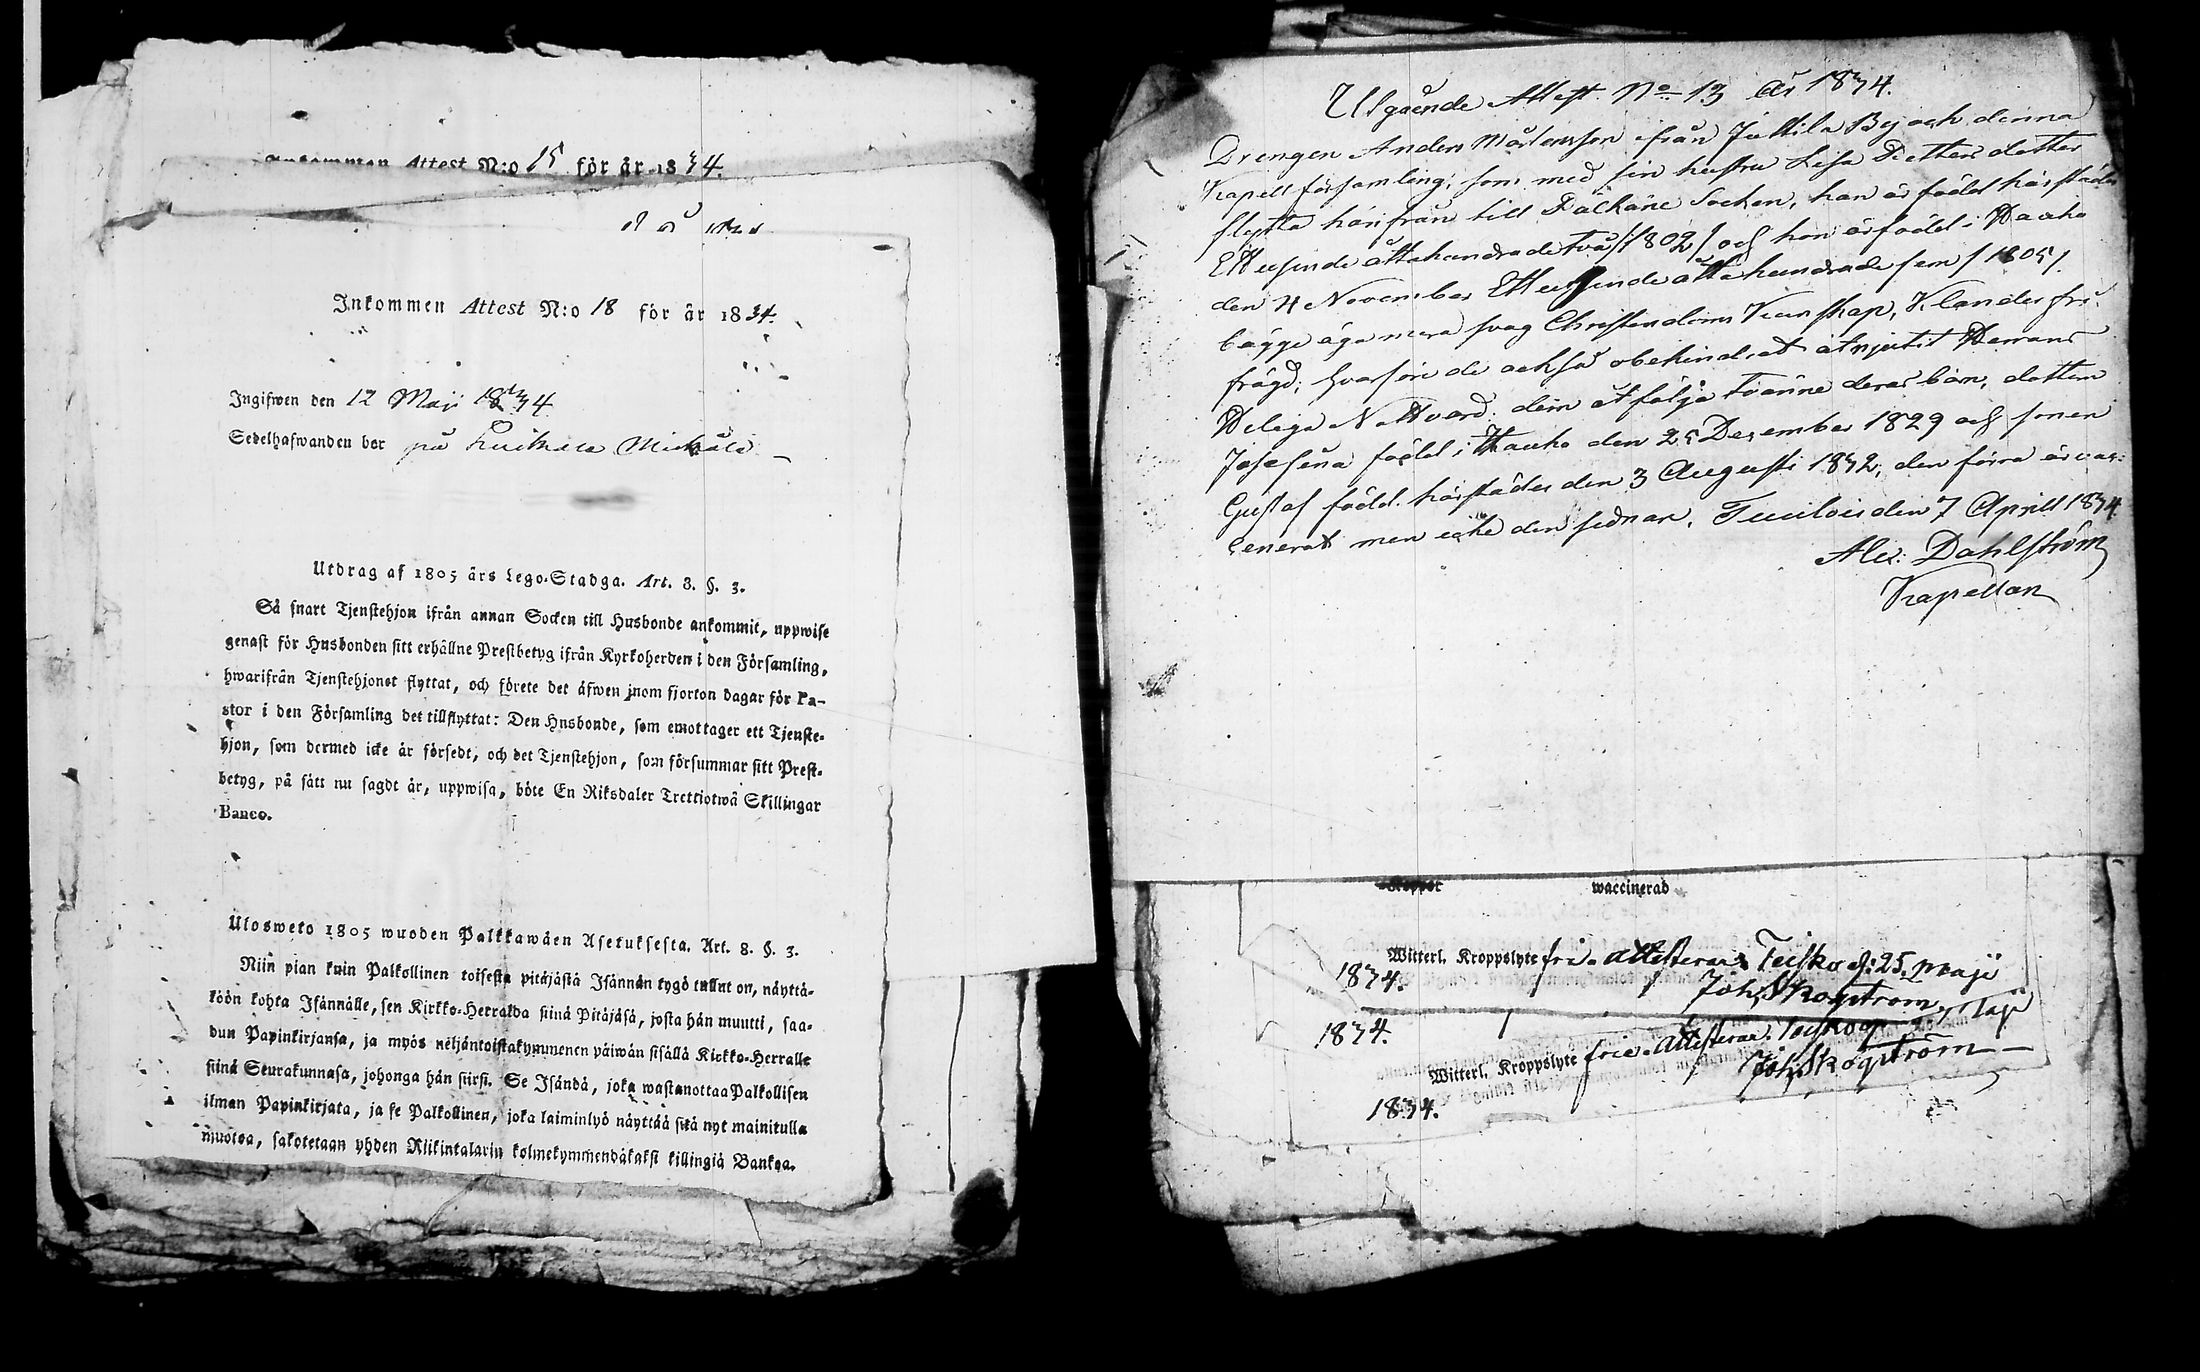 Inkommen Attest N:o 15 för år 1834.
Inkommen Attest N:o 18 för år 1834.
Ingifwen den 12 Maji 1834
Sedelhafwanden bor på
Utdrag af 1805 års Lego-Stadga. Art. 8. §. 3.
Så snart Tjenstehjon ifrån annan Socken till Husbonde ankommit, uppwise
genast för Husbonden sitt erhållne Prestbetyg ifrån Kyrkoherden i den Församling,
hwarifrån Tjenstehjonet flyttat, och förete det äfwen inom fjorton dagar för Pa-
stor i den Församling det tillflyttat: Den Husbonde, som emottager ett Tjenste-
hjon, som dermed icke är försedt, och det Tjenstehjon, som försummar sitt Prest-
betyg, på sätt nu sagdt är, uppwisa, böte En Riksdaler Trettiotwå Skillingar
Banco.
Ulosweto 1805 wuoden Palkkawäen Asetuksesta. Art. 8. §. 3.
Niin pian kuin Palkollinen toisesta pitäjästä Isännän tygö tullut on, näyttä-
köön kohta Isännälle, sen Kirkko-Herralda siinä Pitäjäsä, josta hän muutti, saa-
dun Papinkirjansa, ja myös neljäntoistakymmenen päiwän sisällä Kirkko-Herralle
siinä Seurakunnasa, johonga hän siirsi. Se Isändä, joka wastanottaa Palkollisen
ilman Papinkirjata, ja se Palkollinen, joka laiminlyö näyttää sitä nyt mainitulla
muotoa, sakotetaan yhden Riikintalarin kolmekymmendäkaksi killingiä Bankoa.
Utgående Attest No 13 År 1834.
Drengen Anders Mårtensson ifrån Juttila By och denna
Kapell församling, som med sin hustru Lisa Pettersdotter
flytta härifrån till Pälkäne Socken, han är född härstädes
Ettusende åttahundrade två /1802/ och hon är född i Hauho
den 4 November Ettusende åtta hundrade fem /1805/.
bägge äga svag Christendoms Kunskap, Klanderfri
frägd, hvarföre de också obehindrat åtnjutit Herrans
Heliga Nattvard. dem åtfölja tvänne deras barn, dottern
Josefina född i Hauho den 25 Desember 1829 och sonen
Gustaf född härstädes den 3 Augusti 1832, den förra är vac-
cinerat men icke den sednare. Tuulois den 7 Aprill 1834.
Alex: Dahlström
Kapellan
Koppor waccinerad
Witterl. Kroppslyte fri. attesterar Teisko d: 25. Maji
1834. Joh. Skogström
1834.
Witterl. Kroppslyte frie. Attesterar.
Joh. Skogström
1834.